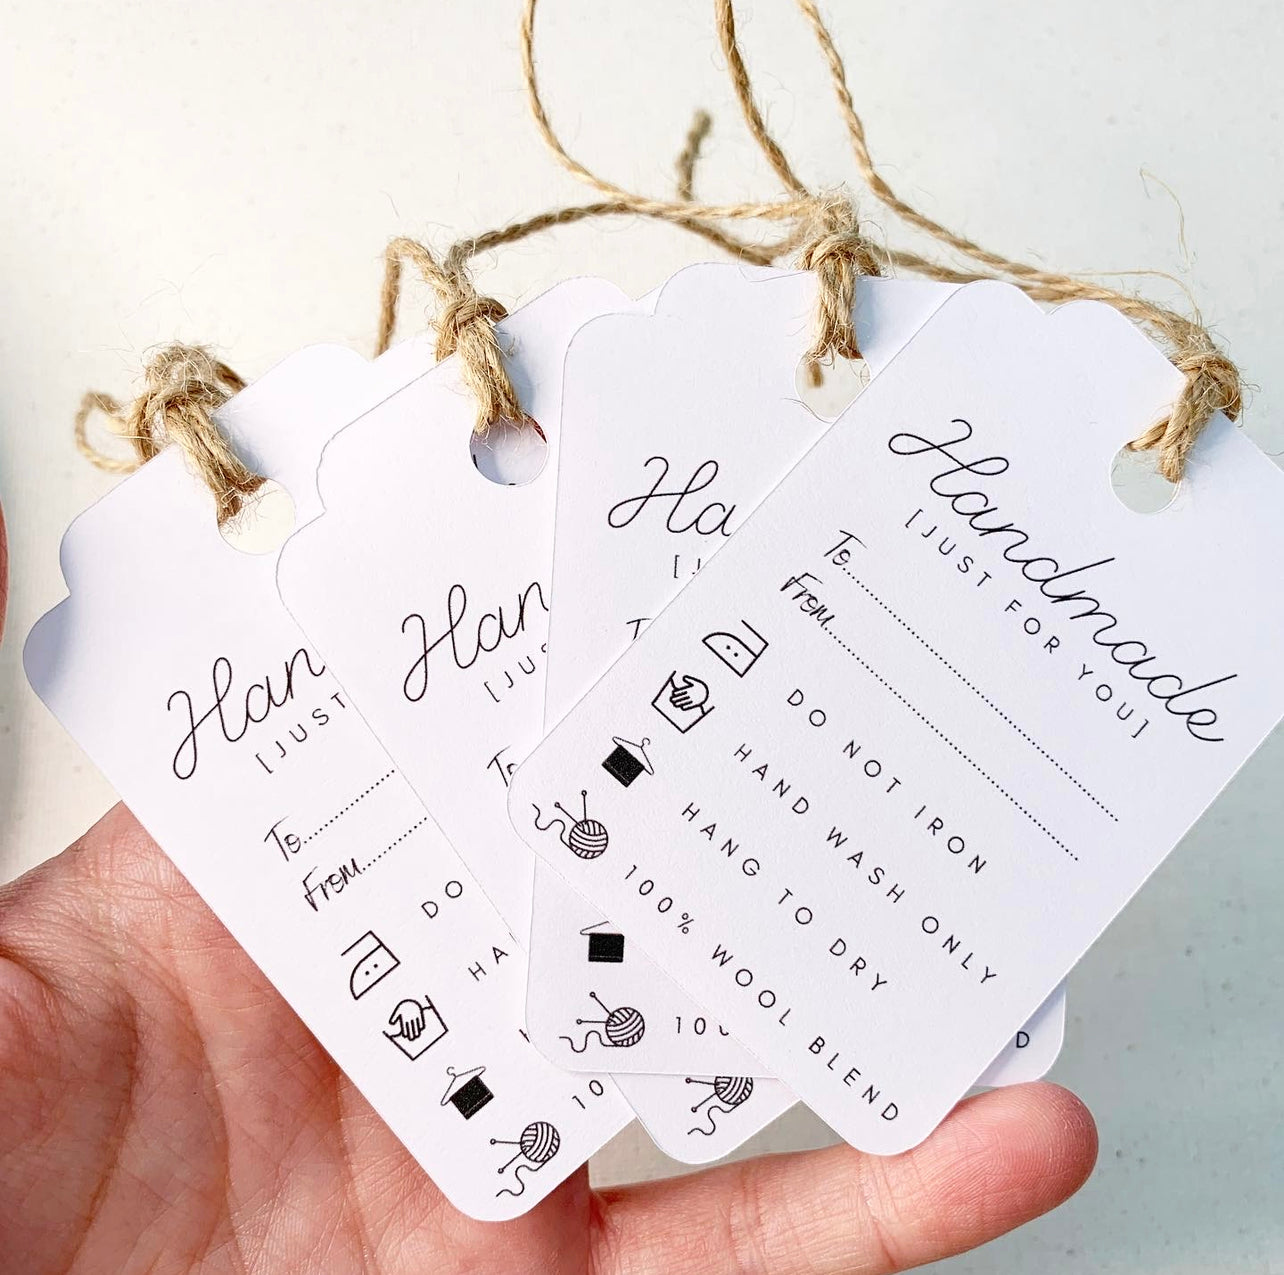 Handmade
[JUST FOR YOU]
To
From
DO NOT IRON
HAND WASH ONLY
HANG TO DRY
100% WOOL BLEND
Ha
[J
T
10
D
Han
[JUS
To
Han
[JUST
To
From
DO
HA
10